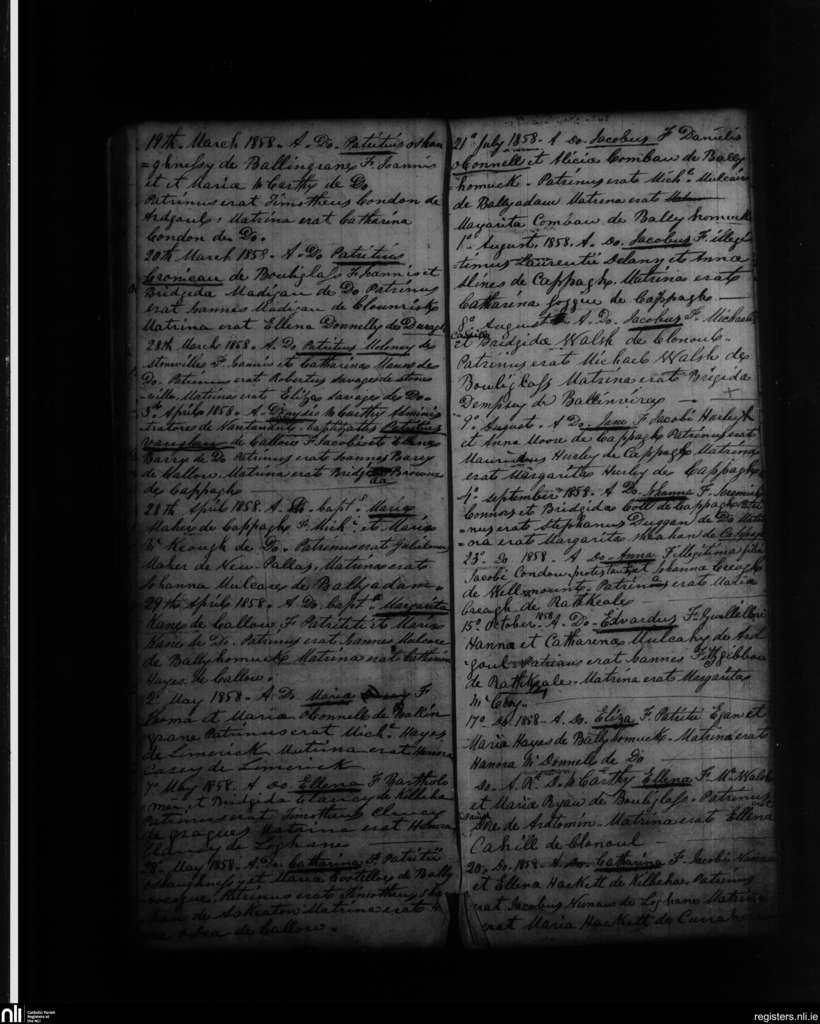 19th March 1858. A. Do. Patritius oshau
=ghnessy de Ballingrane F. Joannis
et et Maria McCarthy de Do.
Patrinus erat Timotheus Condon de
Ardgoul. Matrina erat Catharina
Condon de Do.
20th March 1858. A. Do Patritius
Croneau de Bouliglass F. Joannis et
Bridgida Madigan de Do Patrinus
erat Joannes Madigan de Clounrisk
Matrina erat Ellena Donnelly de
28th March 1858. A. Do Patritius Moloney de
stonville F. Joannis et Catharina de
Do. Patrinus erat Robertus Savage de stone
ville. Matrina erat Eliza Savage de Do.
5th Aprile 1858. A. Dionysio McCarthy Adminis
tratore de Nantanan. Baptizatus Patritius
Vaughan de Callow F. Jacobi et Ellena
Barry de Do Patrinus erat Joannes Barry
de Callow Matrina erat Bridgida Browne
de Cappagh
28th April 1858. A. Do. Bapt. Maria
Maher de Cappagh F. Mich. et Maria
McKeough de Do. Patrinus erat
Maher de New Pallas. Matrina erat
Johanna Mulcare de Ballyadam.
29th April 1858. A. Do. Bapt. Margarita
Kane de Callow. F. Patritii et Maria
Kane de Do. Patrinus erat Joannes Mulcare
de Ballyhomuck Matrina erat Catharina
Hayes de Callow.
2° May 1858. A. Do Maria F
Thoma et Maria O'Connell de Ballin
grane Patrinus erat Mich. Hayes
de Limerick Matrina erat Hanora
Casey de Limerick
7° May 1858. A Do. Ellena F Bartholo
mei et Bridgida Clancy de
Patrinus erat Timotheus Clancy
de Matrina erat
Clancy de Loghane
28° May 1858. A. Do. Catharina F. Patritii
oshaughnessy et Maria Costelloe de Bally
Patrinus erat Timotheus
de Askeaton Matrina erat
de Callow.
21° July 1858. A Do. Jacobus F Danielis
oConnell et Alicia Combau de Bally
homuck. Patrinus erat Mich. Mulcare
de Ballyadam Matrina erat
Margarita Combau de Ballyhomuck
1° August 1858. A. Do. Jacobus F. illegi
timus Laurentii Delany et Anna
Slines de Cappagh. Matrina erat
Catharina de Cappagh
8° August A. Do. Jacobus F. Michaelis
et Bridgida Walsh de Clonoul.
Patrinus erat Michael Walsh de
Bouliglass Matrina erat Brigida
Dempsey de Ballinvirey
9° August. A Do. Jane F Jacobi Hurley
et Anna Moore de Cappagh Patrinus erat
Mauritius Hurley de Cappagh Matrina
erat Margarita Hurley de Cappagh
4° September 1858. A Do. Johanna F. Jeremiah
Connors et Bridgida Coll de Cappagh Patri
nus erat Stephanus Duggan de Do Matri
na erat Margarita Shahan de Cappagh
23° Do 1858. A Do. Anna F. legitima
Jacobi Condon protestant et Johanna Creagh
de Hellmount Patrinus erat Maria
Creagh de Rathkeale
15° October 1858 A. Do. Edvardus F. Guillelmi
Hanna et Catharina Mulcahy de Ard
goul. Patrinus erat Joannes Fitzgibbon
de Rathkeale. Matrina erat Margarita
McCoy.
17° Do 1858. A. Do. Eliza F. Patritii Egan et
Maria Hayes de Ballyhomuck. Matrina erat
Hanora McDonnell de Do
Do. A. Rd. D. McCarthy Ellena F. Mc. Walsh
et Maria Ryan de Bouliglass. Patrinus
de Ardtomin. Matrina erat Ellena
Cahill de Clonoul
20° Do. 1858. A Do. Catharina F. Jacobi
et Ellena Hackett de Kilbehae Patrinus
erat Jacobus de Loghane Matrina
erat Maria Hackett de Currah
nli
Catholic Parish
Registers at
the NLI
registers.nli.ie